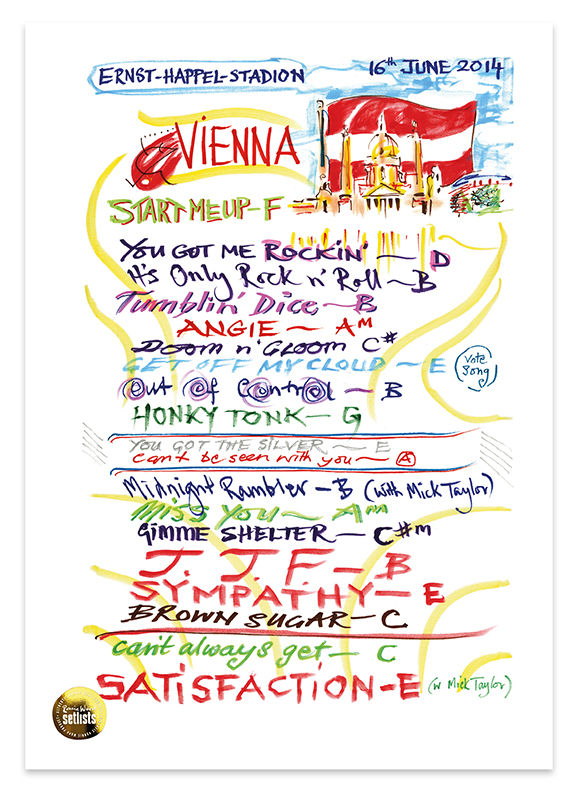 ERNST-HAPPEL-STADION
16th JUNE 2014
ViENNA
START ME UP - F
YOU GOT ME ROCKiN' ~ D
It's Only Rock n' Roll ~ B
Tumblin' Dice ~ B
ANGIE ~ Am
DOOM n' GLOOM C#
GET OFF MY CLOUD - E
Vote Song
Out Of Control - B
HONKY TONK - G
YOU GOT THE SILVER ~ E
Can't be seen with you ~ A
Midnight Rambler - B (with Mick Taylor)
MISS YOU ~ Am
GIMME SHELTER - C#m
J. J. F. - B
SYMPATHY - E
BROWN SUGAR - C
can't always get - C
SATiSFACTiON - E (w Mick Taylor)
Ronnie Wood
setlists